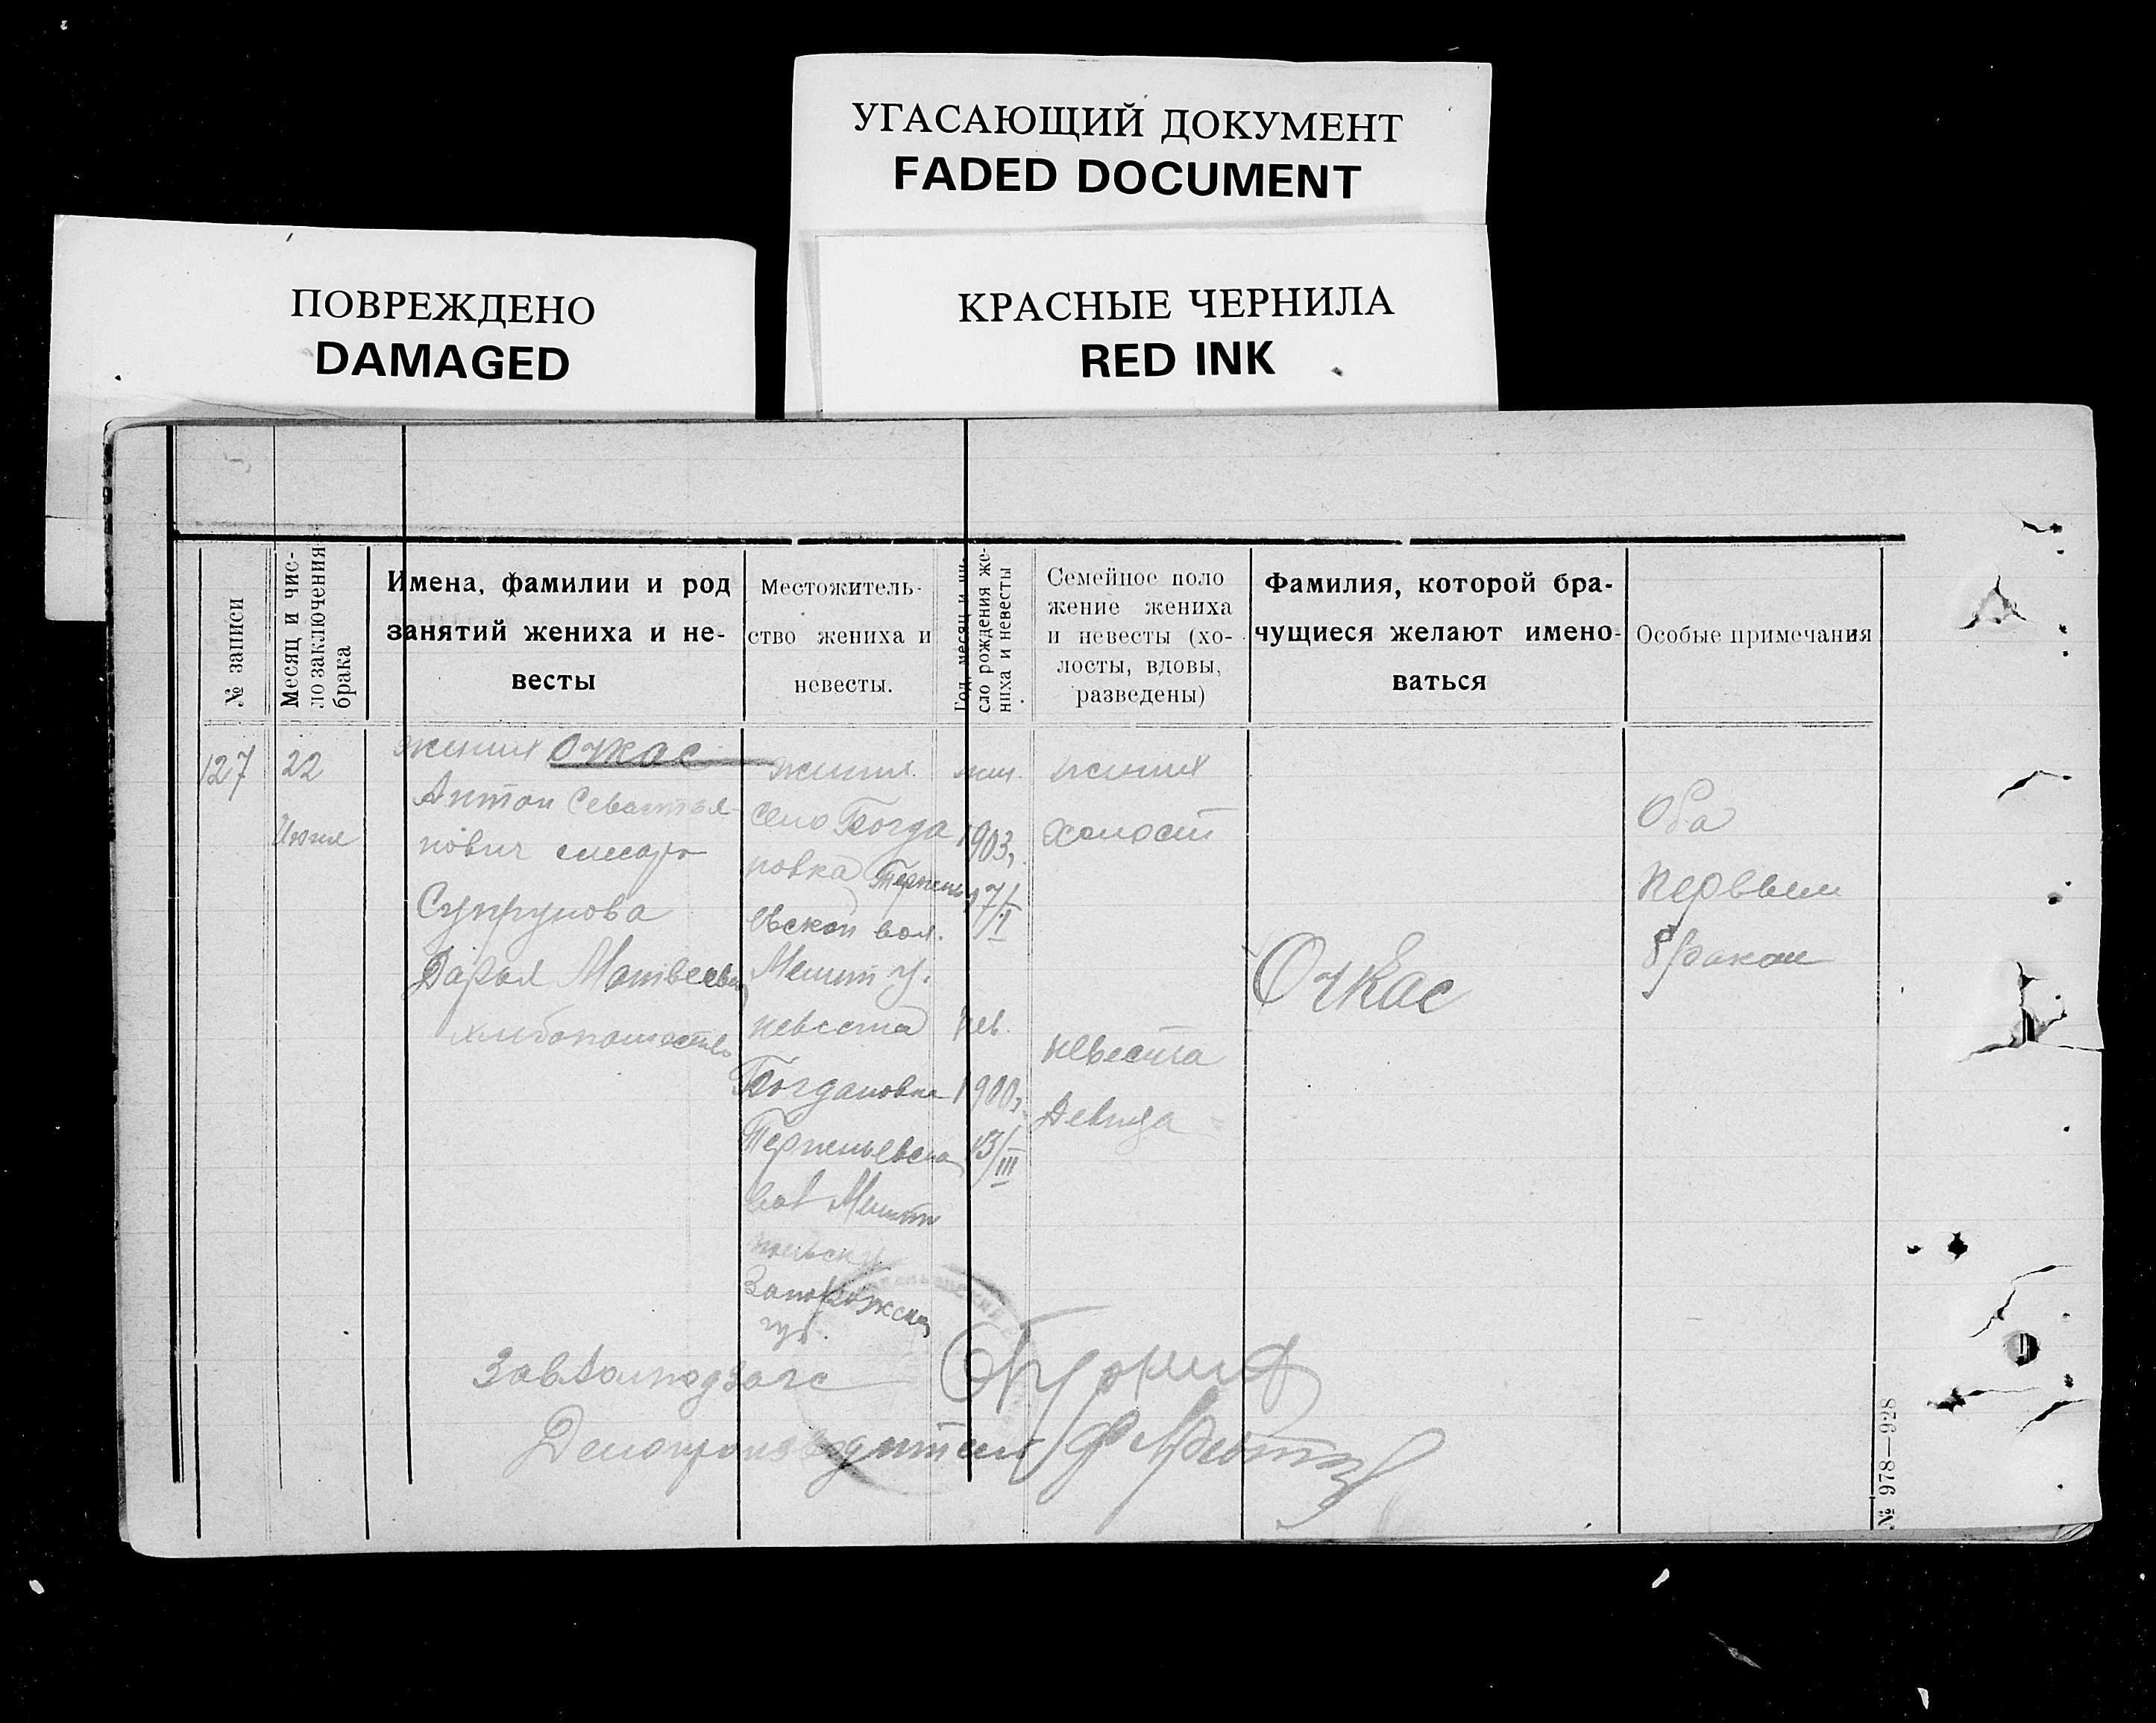 УГАСАЮЩИЙ ДОКУМЕНТ
FADED DOCUMENT
ПОВРЕЖДЕНО
DAMAGED
КРАСНЫЕ ЧЕРНИЛА
RED INK
№ записи
Месяц и чис-
ло заключения
брака
Имена, фамилии и род
занятий жениха и не-
весты
Местожитель-
ство жениха и
невесты.
Год, месяц и чи-
сло рождения же-
ниха и невесты
Семейное поло
жение жениха
и невесты (хо-
лосты, вдовы,
разведены)
Фамилия, которой бра-
чущиеся желают имено-
ваться
Особые примечания
127
22
Июня
жених Очкас
Антон Севастья
нович слесарь
Супрунова
Дарья Матвеевна
хлебопашество
жених
село Богда
новка Терпень
евской вол.
Мелит у.
невеста
Богдановка
Терпеньевской
вол Мелит
польск у.
Запорожской
губ.
жен.
1903,
17/I
нев.
1900,
13/III
жених
холост
невеста
девица
Очкас
Оба
первым
браком
Завволподзагс
Делопроизводитель
№ 978—928